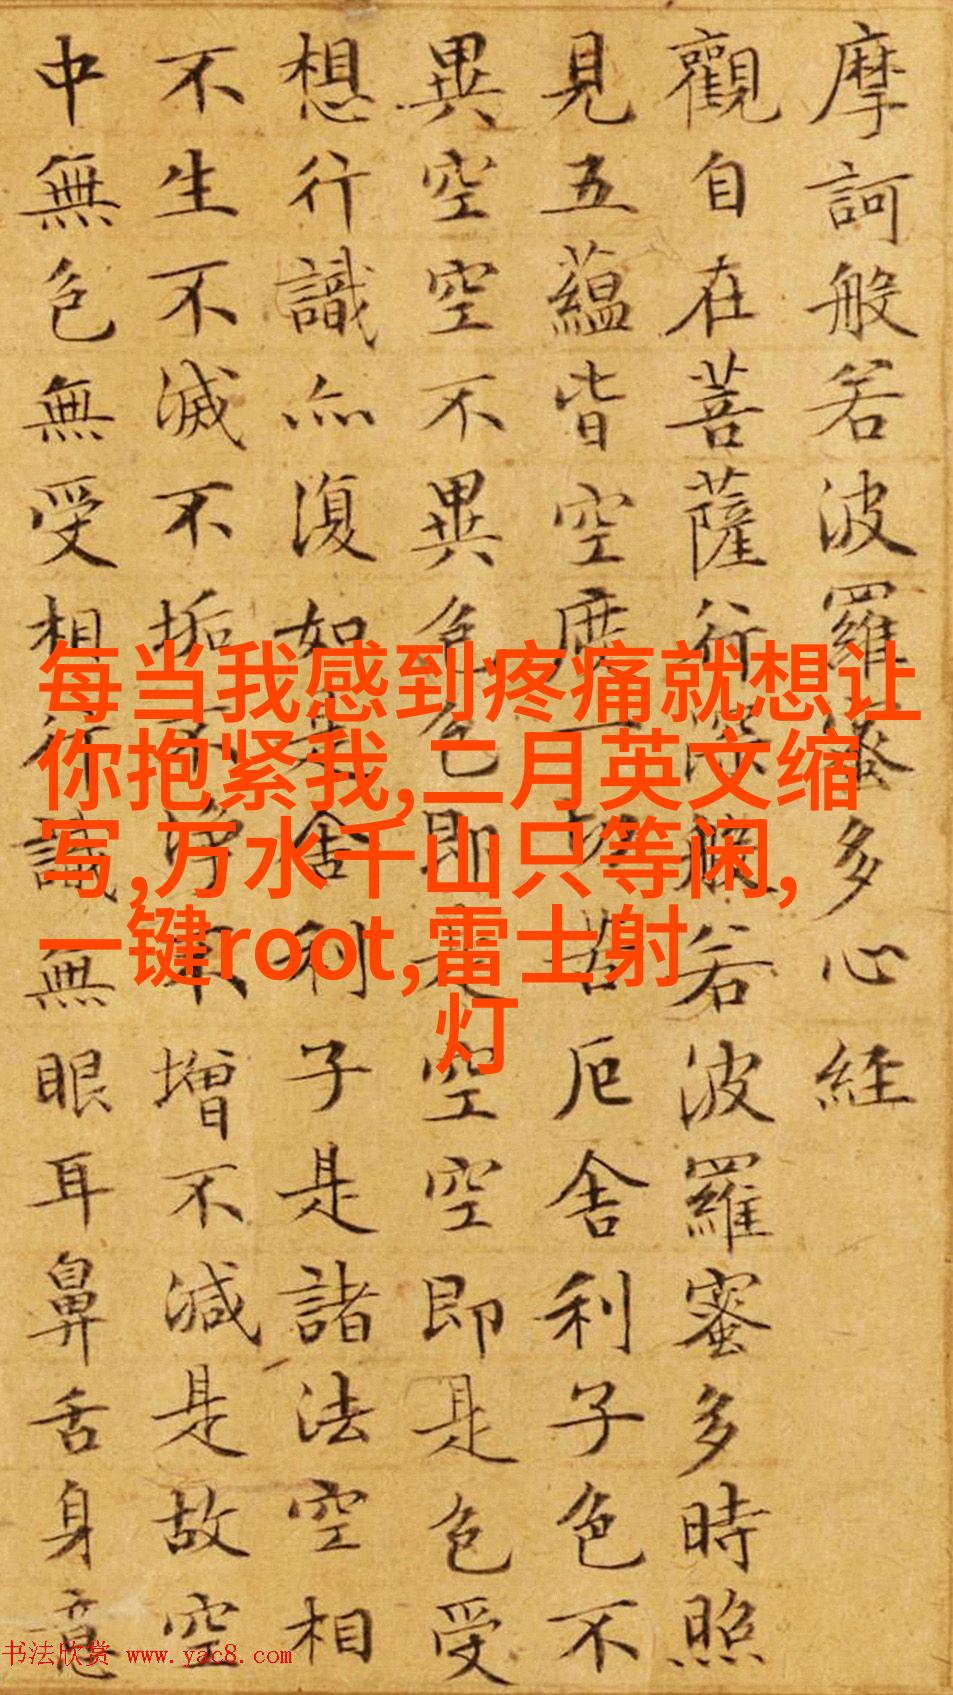 摩訶般若波羅蜜多心経
觀自在菩薩行深般若波羅蜜多時照
見五蘊皆空度一切苦厄舍利子色不
異空空不異色色即是空空即是色受
想行識亦復如是舍利子是諸法空相
不生不滅不垢不淨不增不減是故空
中無色無受相行識無眼耳鼻舌身意
每当我感到疼痛就想让
你抱紧我,二月英文缩
写,万水千山只等闲,
一键root,雷士射
灯
书法欣赏 www.yac8.com